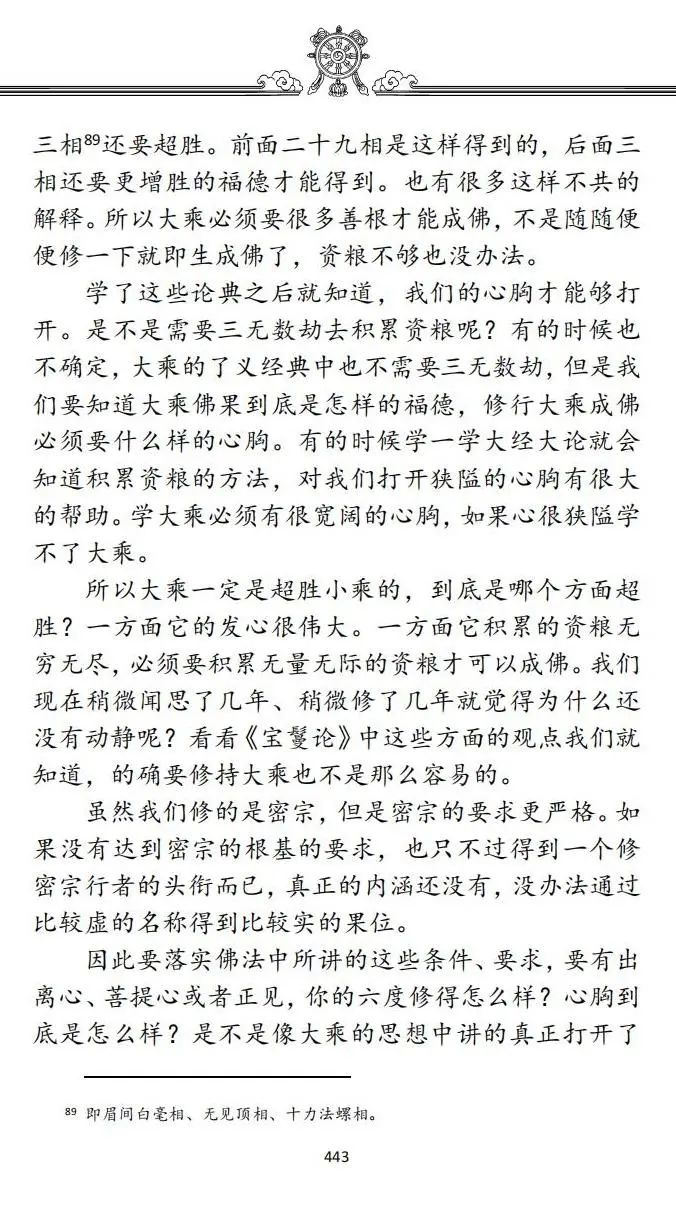 三相89还要超胜。前面二十九相是这样得到的，后面三
相还要更增胜的福德才能得到。也有很多这样不共的
解释。所以大乘必须要很多善根才能成佛，不是随随便
便修一下就即生成佛了，资粮不够也没办法。
学了这些论典之后就知道，我们的心胸才能够打
开。是不是需要三无数劫去积累资粮呢？有的时候也
不确定，大乘的了义经典中也不需要三无数劫，但是我
们要知道大乘佛果到底是怎样的福德，修行大乘成佛
必须要什么样的心胸。有的时候学一学大经大论就会
知道积累资粮的方法，对我们打开狭隘的心胸有很大
的帮助。学大乘必须有很宽阔的心胸，如果心很狭隘学
不了大乘。
所以大乘一定是超胜小乘的，到底是哪个方面超
胜？一方面它的发心很伟大。一方面它积累的资粮无
穷无尽，必须要积累无量无际的资粮才可以成佛。我们
现在稍微闻思了几年、稍微修了几年就觉得为什么还
没有动静呢？看看《宝鬘论》中这些方面的观点我们就
知道，的确要修持大乘也不是那么容易的。
虽然我们修的是密宗，但是密宗的要求更严格。如
果没有达到密宗的根基的要求，也只不过得到一个修
密宗行者的头衔而已，真正的内涵还没有，没办法通过
比较虚的名称得到比较实的果位。
因此要落实佛法中所讲的这些条件、要求，要有出
离心、菩提心或者正见，你的六度修得怎么样？心胸到
底是怎么样？是不是像大乘的思想中讲的真正打开了
89 即眉间白毫相、无见顶相、十力法螺相。
443